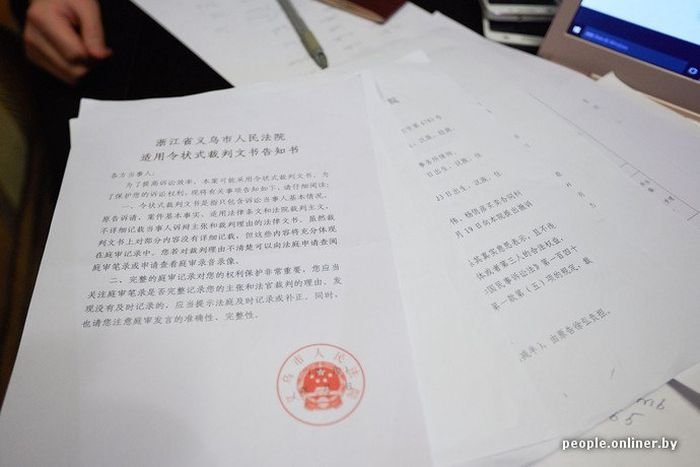 浙江省义乌市人民法院
适用令状式裁判文书告知书
各方当事人：
为了提高诉讼效率，本案可能采用令状式裁判文书。为
了保护您的诉讼权利，现将有关事项告知如下，请仔细阅读：
一、令状式裁判文书是指只包含诉讼当事人基本情况、
原告诉请、案件基本事实、适用法律条文和法院裁判主文，
不详细记载当事人诉辩主张和裁判理由的法律文书。虽然裁
判文书上对部分内容没有详细记载，但这些内容将充分体现
在庭审记录中。您若对裁判理由不清楚可以向法庭申请查阅
庭审笔录或申请查看庭审录音录像。
二、完整的庭审记录对您的权利保护非常重要，您应当
关注庭审笔录是否完整记录您的主张和法官裁判的理由。发
现没有及时记录的，应当提示法庭及时记录或补正。同时，
也请您注意庭审发言的准确性、完整性。
义乌市人民法院
日出生，汉族，住
日出生，汉族，住
月19日向本院提出撤诉
其真实意思表示，且不违
体或者第三人的合法权益，
国民事诉讼法》第一百四十
第一款第（五）项的规定，裁
减半），由原告徐弘负担。
65
people.onliner.by